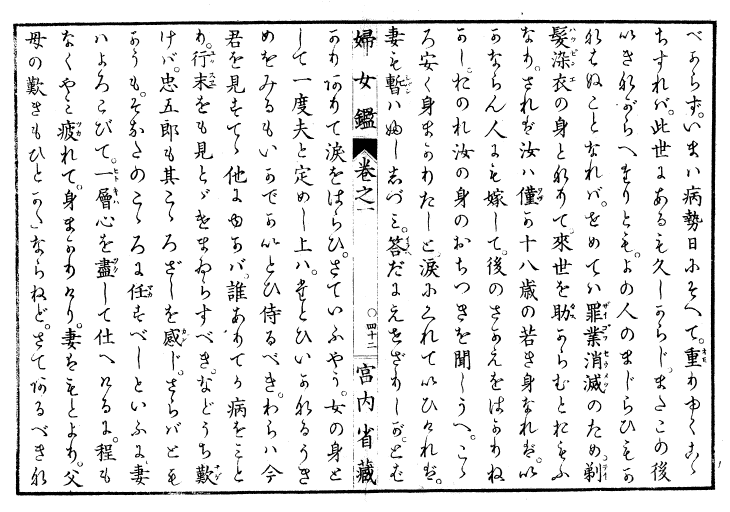 べからず。いまハ病勢日にそへて。重りゆくこゝ
ちすれバ。此世にあるも久しからじ。またこの後
いきながらへたりとも。よの人のまじらひもか
なはぬことなれバ。せめてハ罪業消滅のため。剃
髪染衣の身となりて。來世を助からむとおもふ
なり。されば汝ハ僅か十八歳の若き身なれば。い
かならん人にも嫁して。後のさかえをはかりね
かし。おのれ汝の身のおちつきを聞しうへ。こゝ
ろ安く身まかりわたしと。涙にくれていひければ。
妻も暫ハふししづミ。答だにえせざりしが。とば
婦女鑑 卷之一 ○四十二 宮内省藏
かりありて涙をはらひ。さていふやう。女の身と
して一度夫と定めし上ハ。たとひいかなるうき
めをみるもいかでかいとひ侍るべき。わらハ今
君を見すてゝ他にゆかバ。誰ありてか病をミと
り。行末をも見とゞけまゐらすべき。などうち歎
けバ。忠五郎も其こゝろざしを感じ。さらバとも
かうも。そなたのこゝろに任すべしといふに。妻
ハよろこびて。一層心を盡して仕へけるに。程も
なくやミ疲れて。身まかりけり。妻はもとより。父
母の歎きもひとかたならねど。さてあるべきな